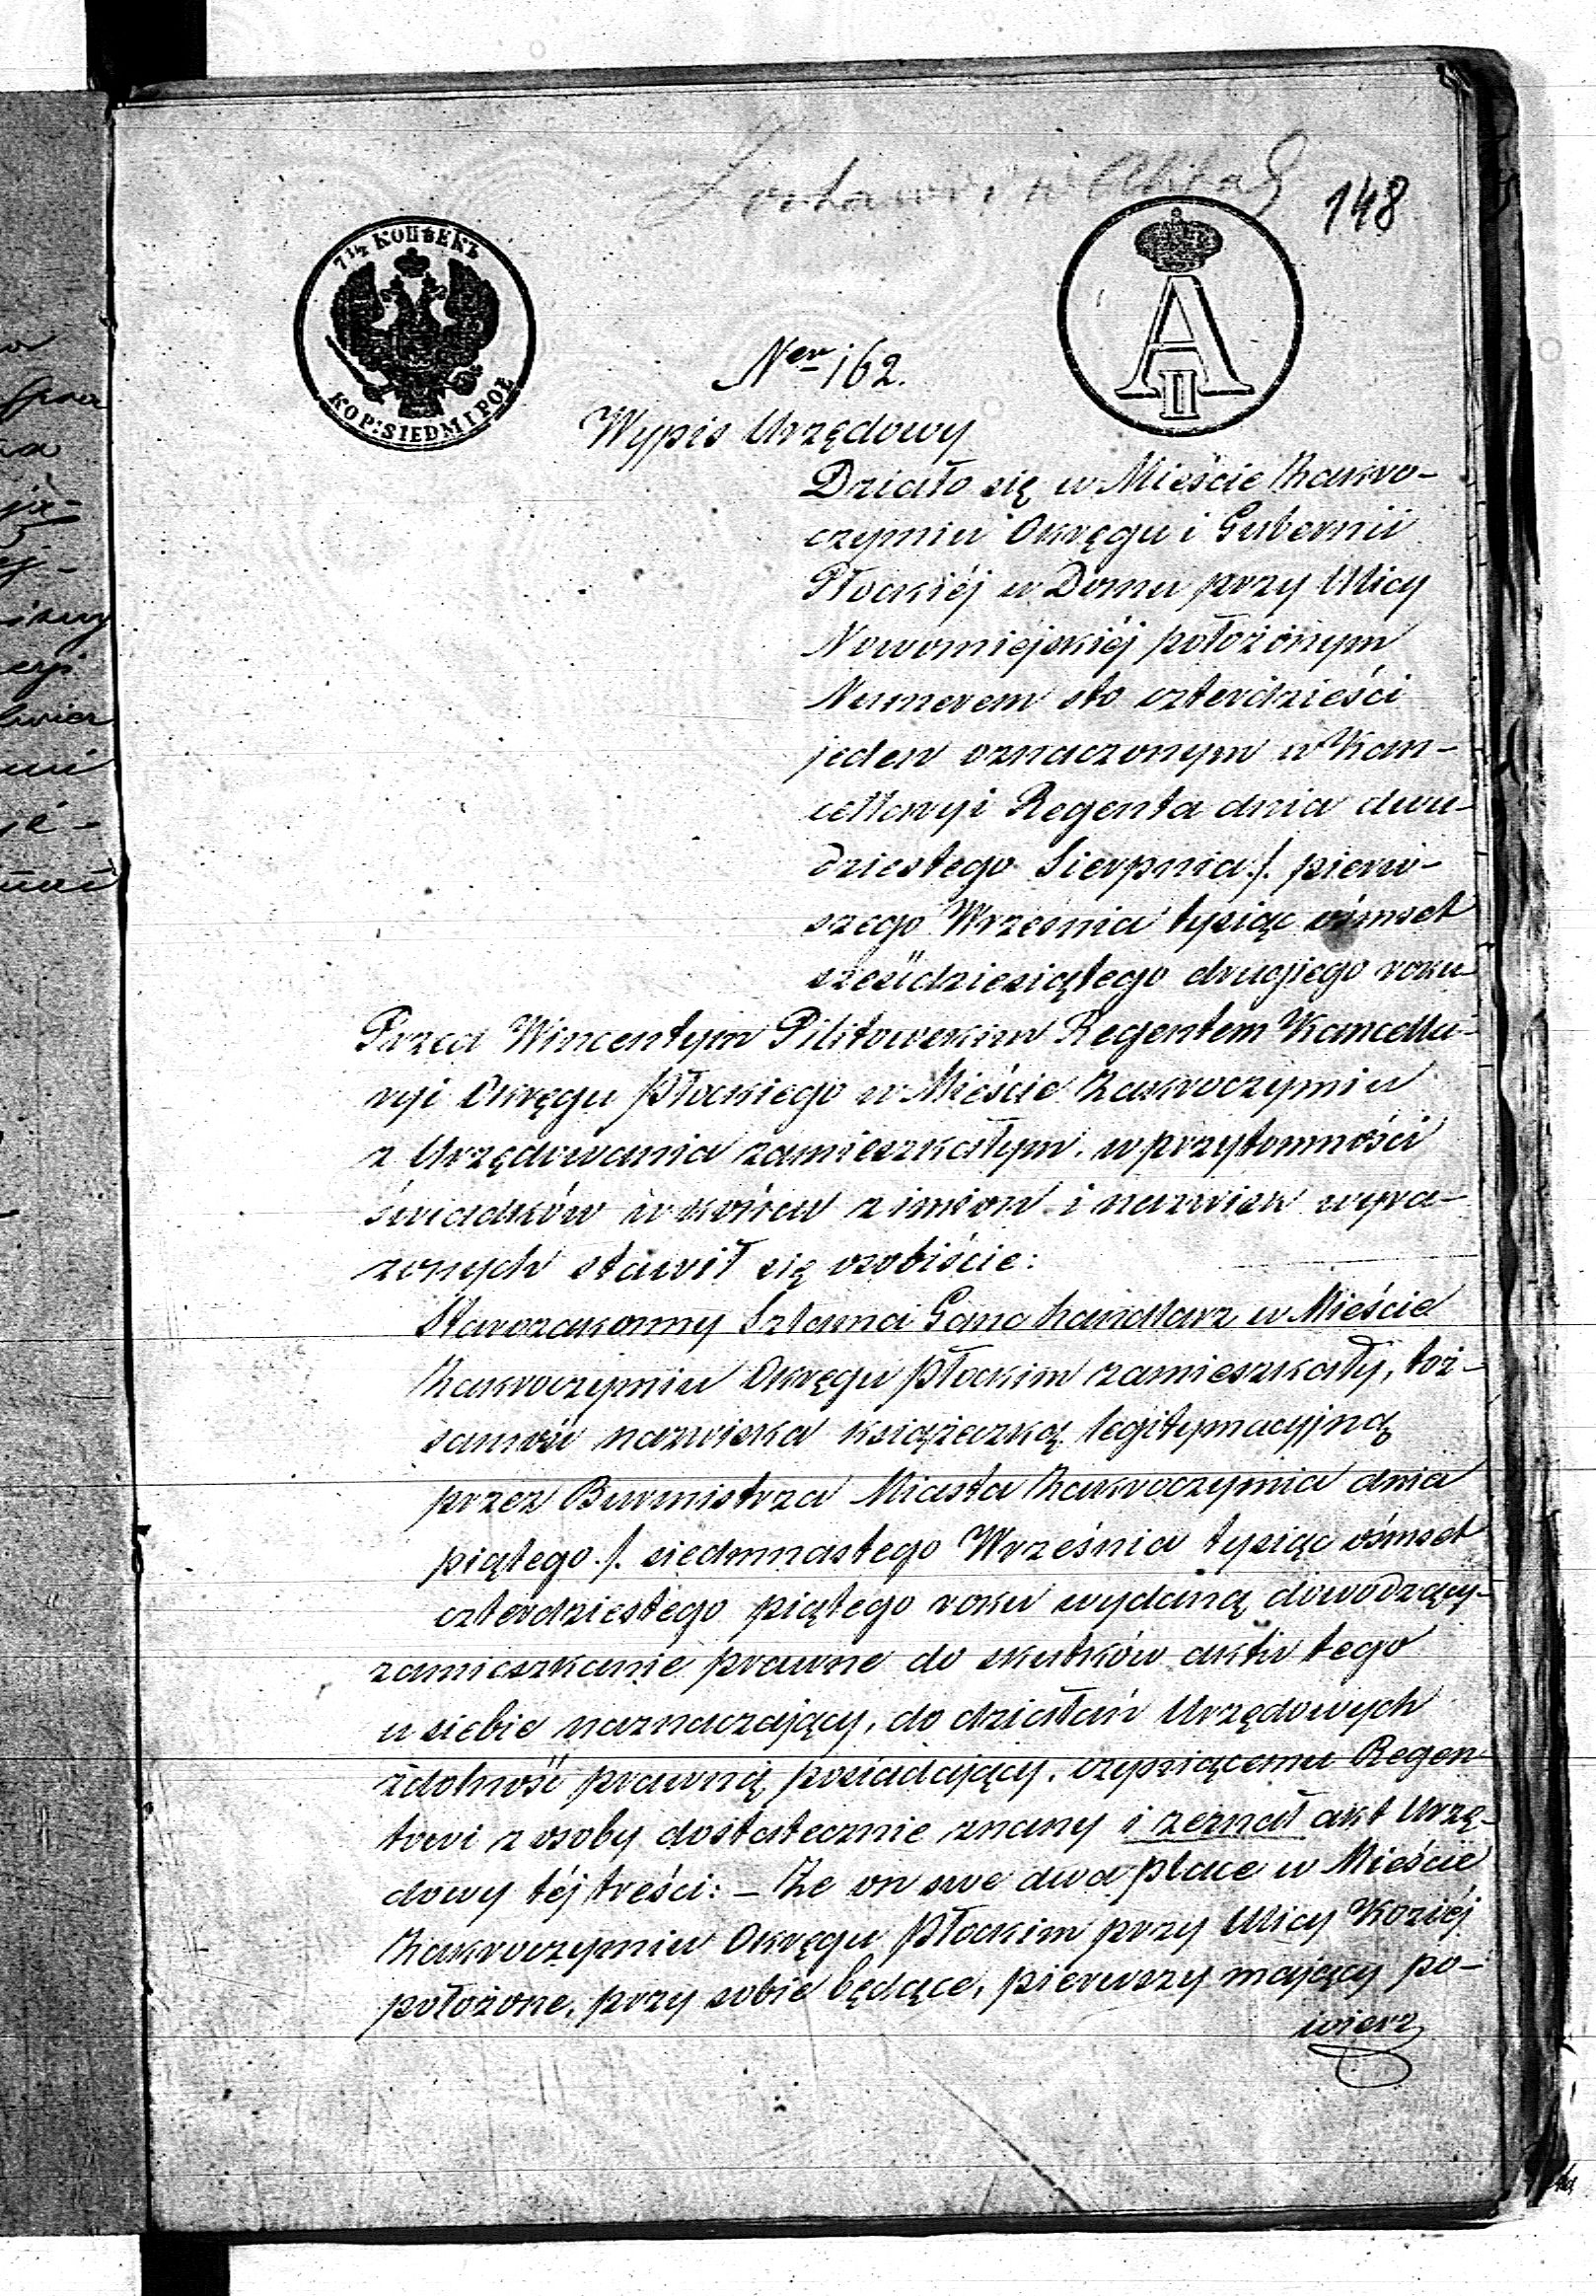 148
7 1/2 КОПѢЕКЪ
KOP: SIEDM I PÓŁ
A II
Ner 162.
Wypis Urzędowy
Działo się w Mieście Zakro-
czymiu Okręgu i Gubernii
Płockiéj w Domu przy Ulicy
Nowomiejskiéj położonym
Numerem sto czterdzieści
jeden oznaczonym w Kan-
cellaryi Regenta dnia dwu-
dziestego Sierpnia ./. pierw-
szego Września tysiąc ośmset
sześćdziesiątego drugiego roku
Przed Wincentym Pilitowskim Regentem Kancella-
ryi Okręgu Płockiego w Mieście Zakroczymiu
z Urzędowania zamieszkałym, w przytomności
świadków w końcu z imion i nazwisk wyra-
żonych stawił się osobiście:
Starozakonny Szlama handlarz w Mieście
Zakroczymiu Okręgu Płockim zamieszkały, toż-
samość nazwiska książeczką legitymacyjną
przez Burmistrza Miasta Zakroczymia dnia
piątego ./. siedmnastego Września tysiąc ośmset
czterdziestego piątego roku wydaną dowodzący
zamieszkanie prawne do skutków aktu tego
u siebie naznaczający, do działań Urzędowych
zdolność prawną posiadający, czyniącemu Regen-
towi z osoby dostatecznie znany i zeznał akt Urzę-
dowy téj treści: – Że on swe dwa place w Mieście
Zakroczymiu Okręgu Płockim przy Ulicy Koziéj
położone, przy sobie będące, pierwszy mający po-
wierz